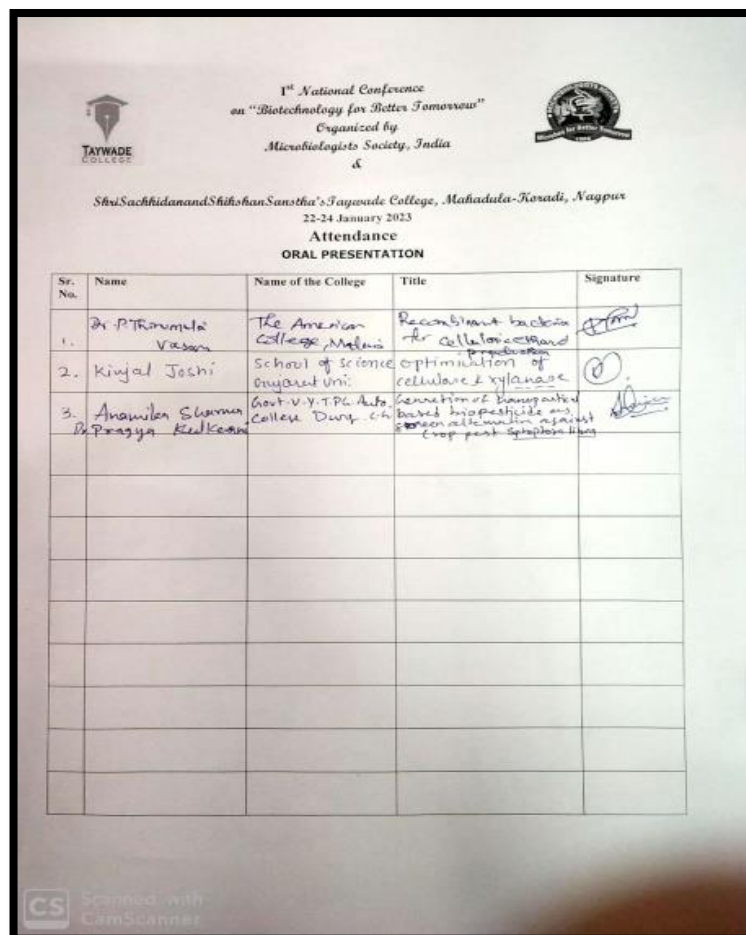 TAYWADE
COLLEGE
1st National Conference
on "Biotechnology for Better Tomorrow"
Organized by
Microbiologists Society, India
&
ShriSachhidanandShikshanSanstha'sTaywade College, Mahadula-Koradi, Nagpur
22-24 January 2023
Attendance
ORAL PRESENTATION
Sr. No. Name Name of the College Title Signature
1. Dr. P. Thirumala Vasan The American College, Recombinant bacteria for cellulosic production
2. Kinjal Joshi School of Science Gujarat Uni: optimisation of cellulase & xylanase
3. Anamika Sharma Dr Pragya Kulkarni Govt. V.Y.T.PG. Auto. College Durg C.G based biopesticide as green alternative against Crop pest
CS Scanned with
CamScanner